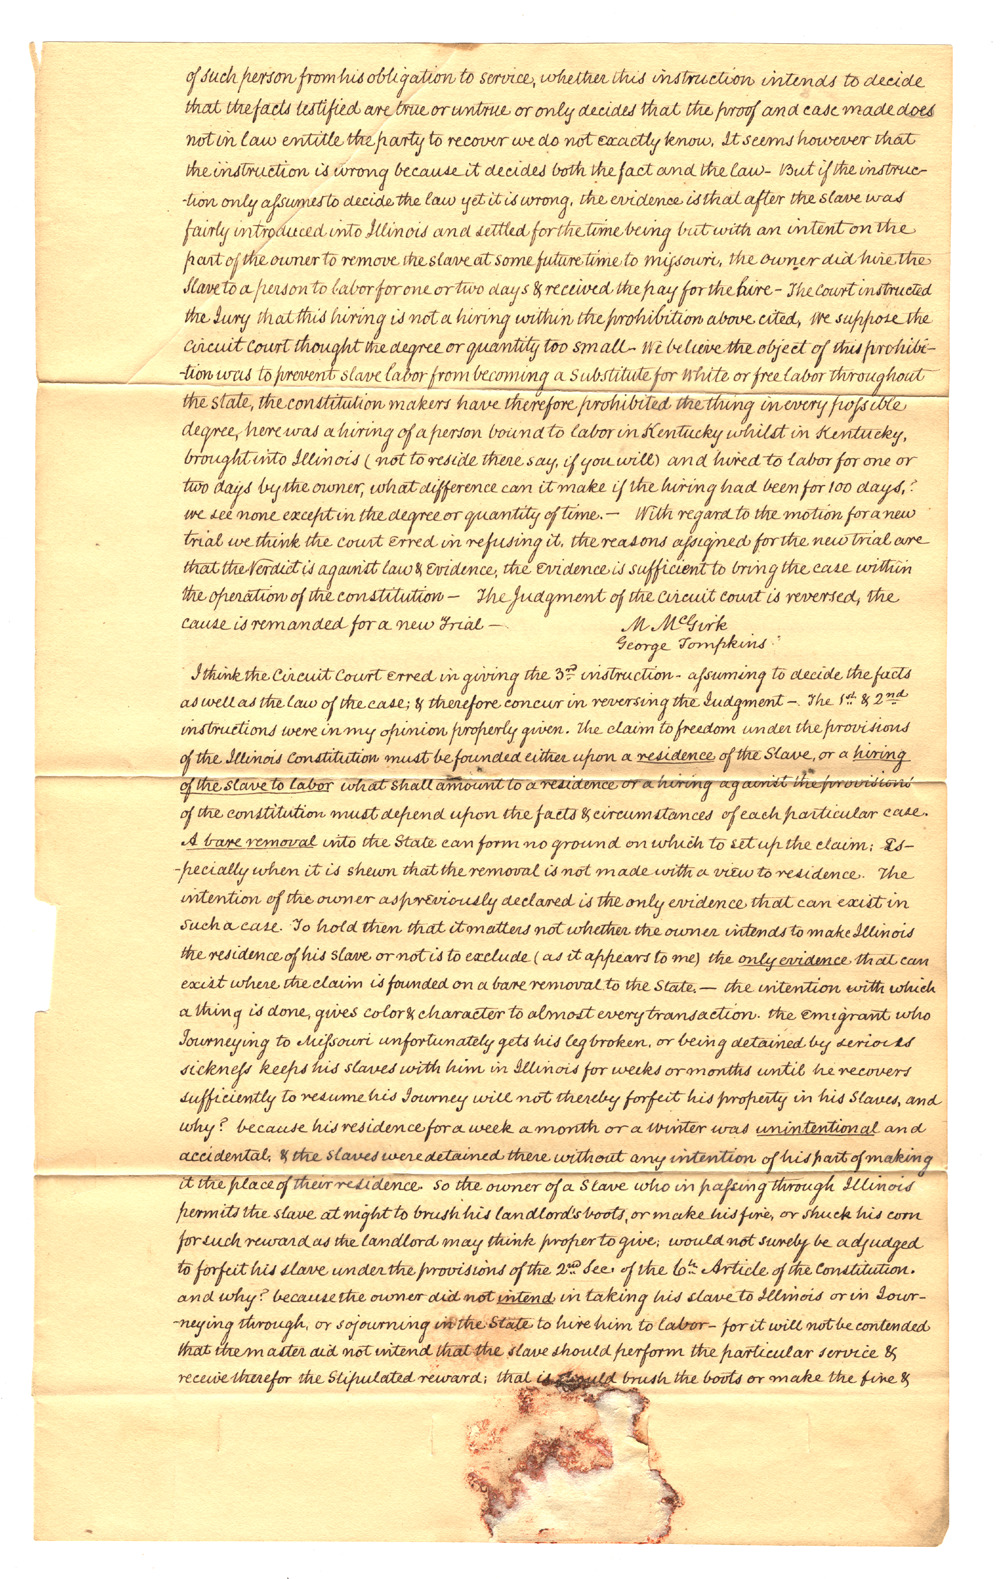 of such person from his obligation to service, whether this instruction intends to decide
that the facts testified are true or untrue or only decides that the proof and case made does
not in law entitle the party to recover we do not exactly know. It seems however that
the instruction is wrong because it decides both the fact and the law - But if the instruc-
-tion only assumes to decide the law yet it is wrong, the evidence is that after the slave was
fairly introduced into Illinois and settled for the time being but with an intent on the
part of the owner to remove the slave at some future time to missouri, the owner did hire the
slave to a person to labor for one or two days & received the pay for the hire - The Court instructed
the Jury that this hiring is not a hiring within the prohibition above cited, We suppose the
Circuit Court thought the degree or quantity too small - We believe the object of this prohibi-
-tion was to prevent slave labor from becoming a substitute for White or free labor throughout
the State, the constitution makers have therefore prohibited the thing in every possible
degree, here was a hiring of a person bound to labor in Kentucky whilst in Kentucky,
brought into Illinois (not to reside there say, if you will) and hired to labor for one or
two days by the owner, what difference can it make if the hiring had been for 100 days,?
we see none except in the degree or quantity of time. — With regard to the motion for a new
trial we think the court erred in refusing it. the reasons assigned for the new trial are
that the Verdict is against law & Evidence, the Evidence is sufficient to bring the case within
the operation of the constitution — The Judgment of the Circuit court is reversed, the
cause is remanded for a new Trial —
M McGirk
George Tompkins
I think the Circuit Court Erred in giving the 3rd instruction - assuming to decide the facts
as well as the law of the case; & therefore concur in reversing the Judgment — The 1st & 2nd
instructions were in my opinion properly given. The claim to freedom under the provisions
of the Illinois Constitution must be founded either upon a residence of the Slave, or a hiring
of the slave to labor what shall amount to a residence or a hiring against the provisions
of the constitution must depend upon the facts & circumstances of each particular case.
A bare removal into the State can form no ground on which to set up the claim; Es-
-pecially when it is shewn that the removal is not made with a view to residence. The
intention of the owner as previously declared is the only evidence that can exist in
such a case. To hold then that it matters not whether the owner intends to make Illinois
the residence of his slave or not is to exclude (as it appears to me) the only evidence that can
exist where the claim is founded on a bare removal to the State. — the intention with which
a thing is done, gives color & character to almost every transaction. the emigrant who
Journeying to Missouri unfortunately gets his leg broken, or being detained by serious
sickness keeps his slaves with him in Illinois for weeks or months until he recovers
sufficiently to resume his Journey will not thereby forfeit his property in his slaves, and
why? because his residence for a week a month or a winter was unintentional and
accidental, & the slaves were detained there without any intention of his part of making
it the place of their residence. So the owner of a Slave who in passing through Illinois
permits the slave at night to brush his landlord's boots, or make his fire, or shuck his corn
for such reward as the landlord may think proper to give; would not surely be adjudged
to forfeit his slave under the provisions of the 2nd Sec. of the 6th Article of the Constitution.
and why? because the owner did not intend in taking his slave to Illinois or in Jour-
-neying through, or sojourning in the State to hire him to labor - for it will not be contended
that the master did not intend that the slave should perform the particular service &
receive therefor the stipulated reward; that is should brush the boots or make the fire &